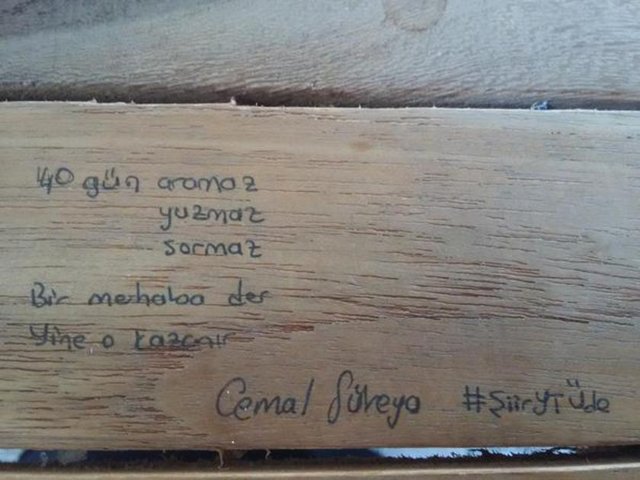 40 gün aramaz
yuzmaz
sormaz
Bir merhaba der
Yine o kazanır
Cemal Süreya #ŞiirYTÜde